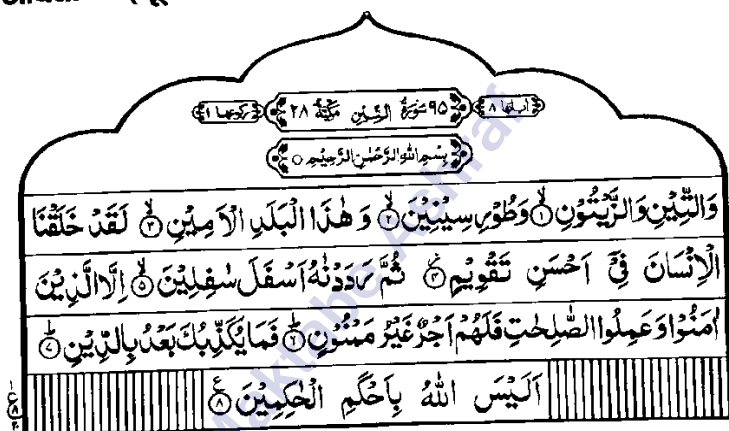 اٰياتها ٨ ٩٥ سُوْرَةُ التِّيْنِ مَكِّيَّةٌ ٢٨ ركوعها ١
بِسْمِ اللهِ الرَّحْمٰنِ الرَّحِيْمِ ○
وَالتِّيْنِ وَالزَّيْتُوْنِ ۙ﴿١﴾ وَطُوْرِ سِيْنِيْنَ ۙ﴿٢﴾ وَ هٰذَا الْبَلَدِ الْاَمِيْنِ ۙ﴿٣﴾ لَقَدْ خَلَقْنَا
الْاِنْسَانَ فِيْۤ اَحْسَنِ تَقْوِيْمٍ ۡ﴿٤﴾ ثُمَّ رَدَدْنٰهُ اَسْفَلَ سٰفِلِيْنَ ۙ﴿٥﴾ اِلَّا الَّذِيْنَ
اٰمَنُوْا وَعَمِلُوا الصّٰلِحٰتِ فَلَهُمْ اَجْرٌ غَيْرُ مَمْنُوْنٍ ؕ﴿٦﴾ فَمَا يُكَذِّبُكَ بَعْدُ بِالدِّيْنِ ؕ﴿٧﴾
اَلَيْسَ اللهُ بِاَحْكَمِ الْحٰكِمِيْنَ ۧ﴿٨﴾
Maktaba Ashraf